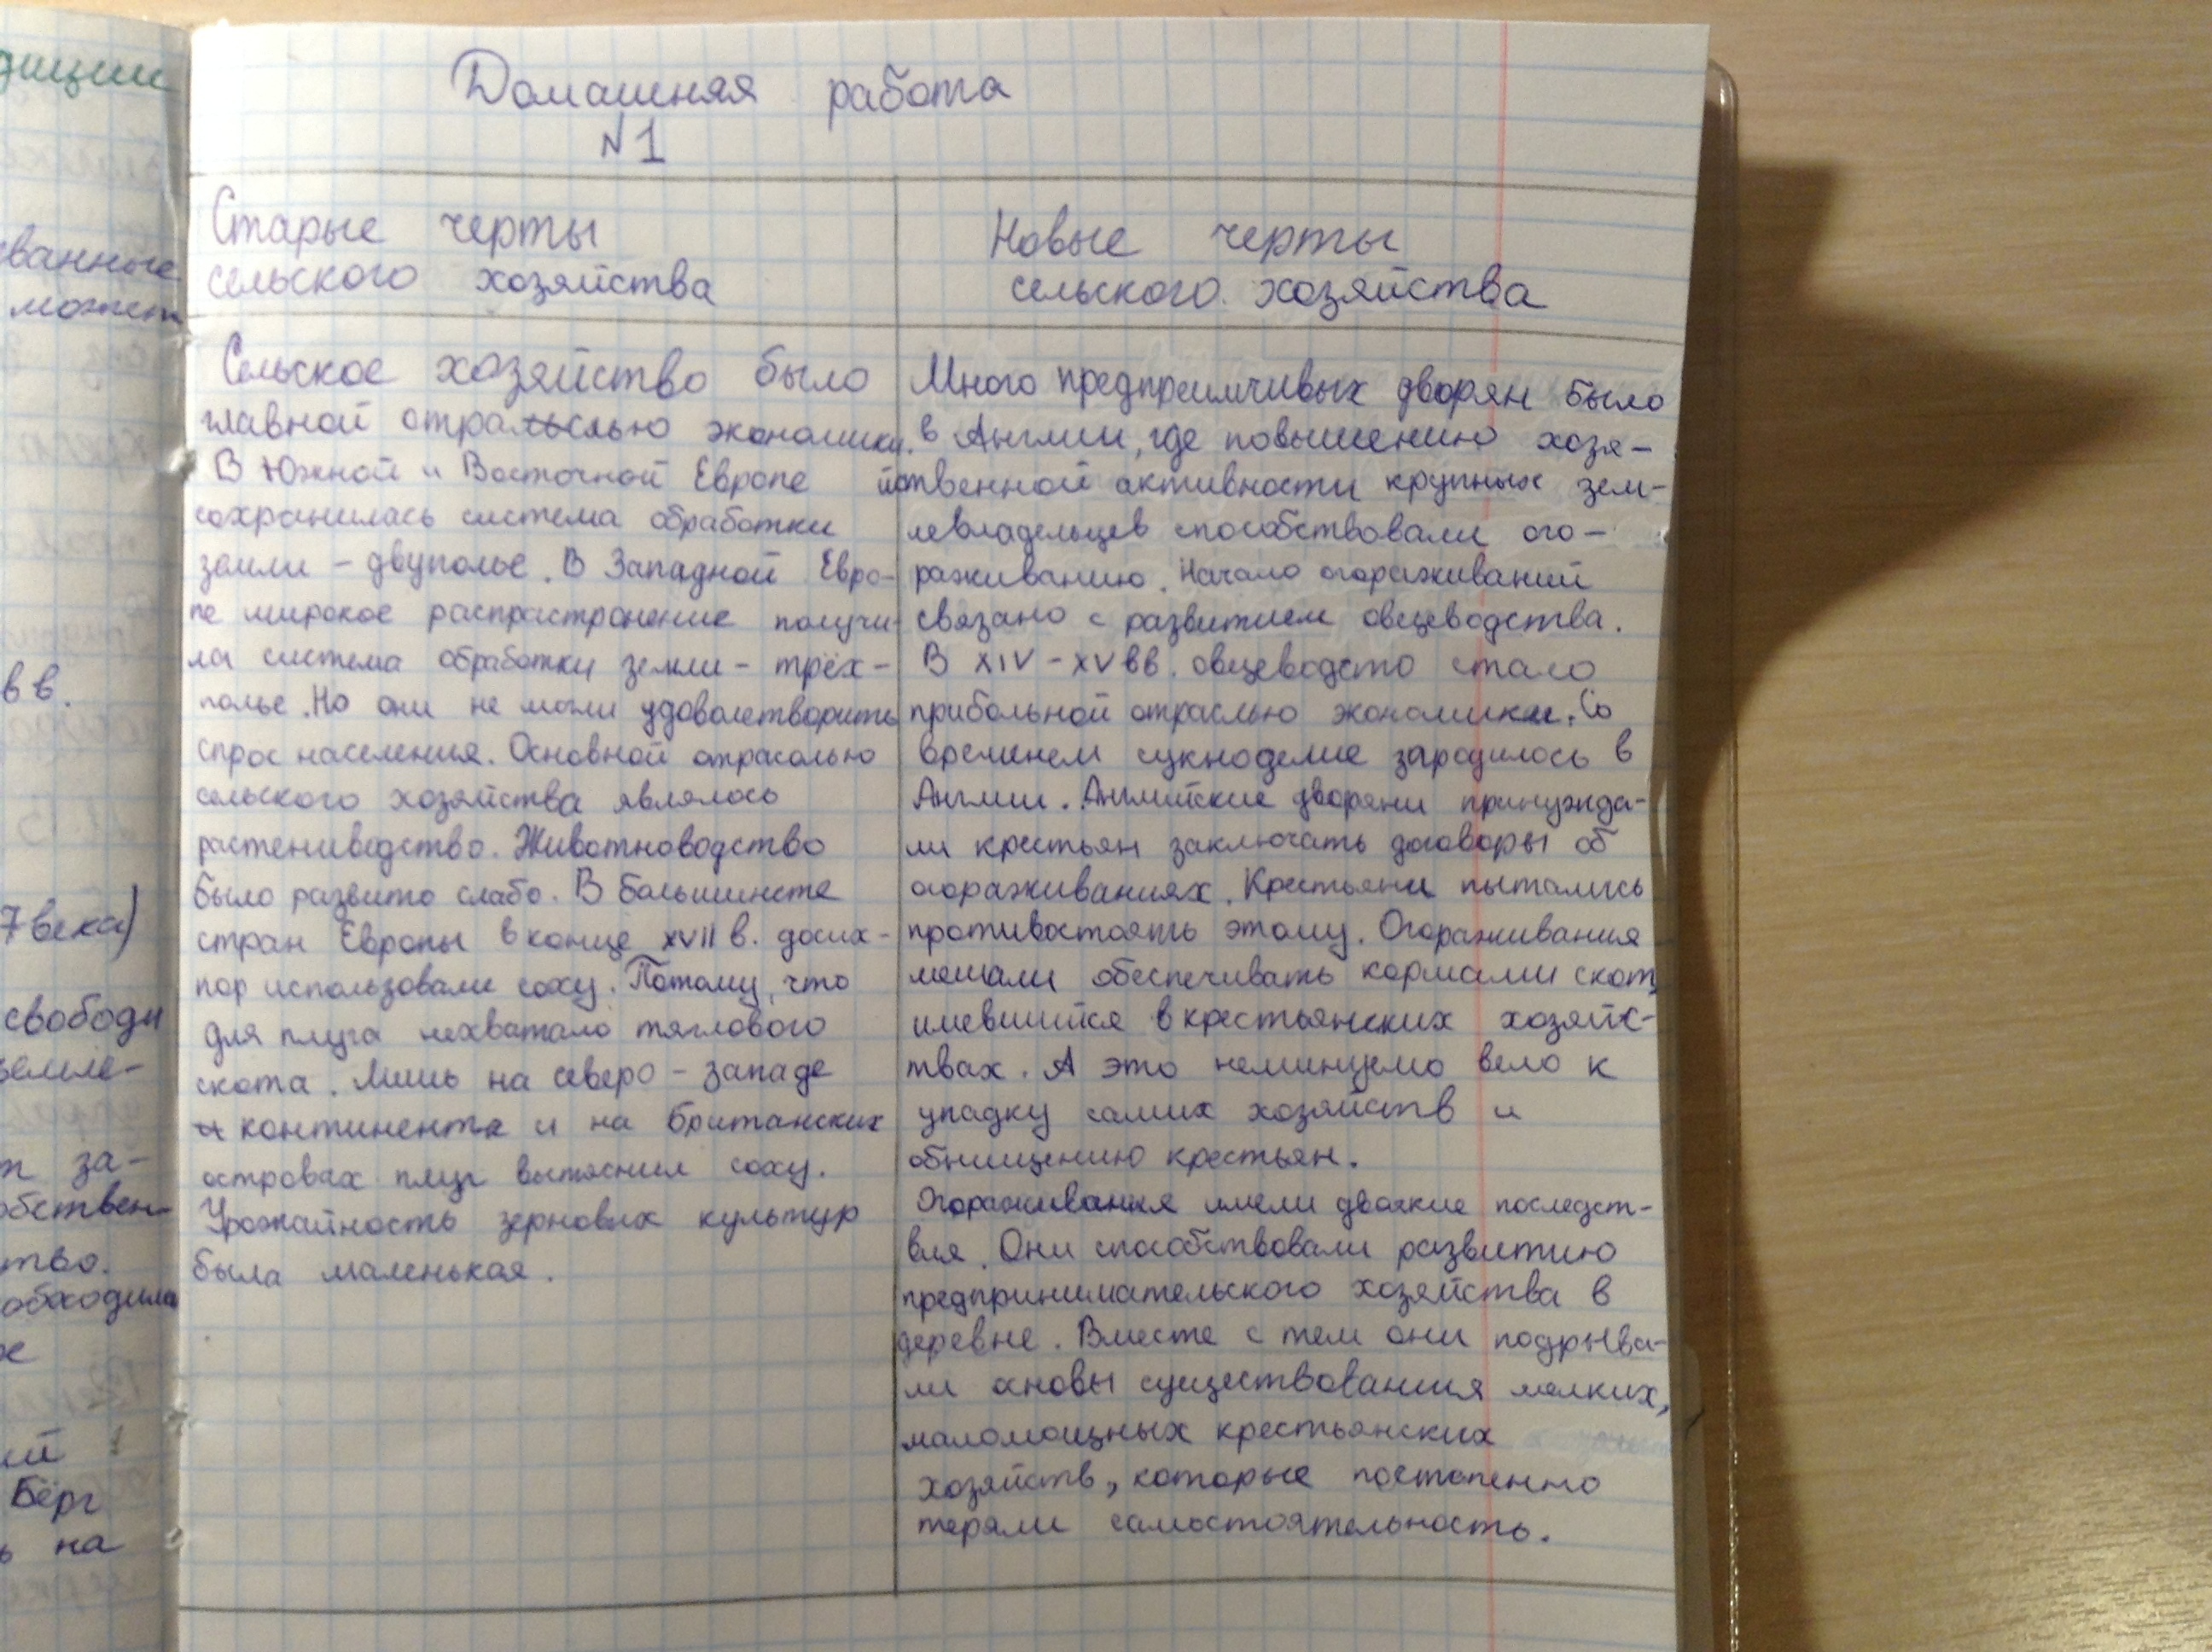 Домашняя работа
№1
Старые черты
сельского хозяйства
Сельское хозяйство было
главной отраслью экономики.
В Южной и Восточной Европе
сохранилась система обработки
земли - двуполье. В Западной Евро-
пе широкое распрастронение получи-
ла система обработки земли - трёх-
полье. Но они не могли удовлетворить
спрос населения. Основной отрасолью
сельского хозяйства являлось
растениводство. Животноводство
было развито слабо. В большинсте
стран Европы в конце XVII в. досих-
пор использовали соху. Потому, что
для плуга нехватало тяглового
скота. Лишь на северо - западе
континента и на Британских
островах плуг вытяснил соху.
Урожайность зерновых культур
была маленькая.
Новые черты
сельского хозяйства
Много предприимчивых дворян было
в Англии, где повышению хозя-
йственной активности крупных зем-
левладельцев способствовали ого-
раживанию. Начало огораживаний
связано с развитием овцеводства.
В XIV - XV вв. овцеводсто стало
прибольной отраслью экономики. Со
временем сукноделие зародилось в
Англии. Английские дворяни принужда-
ли крестьян заключать договоры об
огораживаниях. Крестьяни пытались
противостоять этому. Огораживания
мешали обеспечивать кормами скот,
имевшийся в крестьянских хозяйс-
твах. А это неминуемо вело к
упадку самих хозяйств и
обнищению крестьян.
Огораживания имели двоякие последст-
вия. Они способствовали развитию
предпринимательского хозяйства в
деревне. Вместе с тем они подрыва-
ли сновы существования мелких,
маломощных крестьянских
хозяйств, которые постепенно
теряли самостоятельность.
ванные
может
вв.
7 века)
свободы
земле-
за-
тво.
Бёрг
на